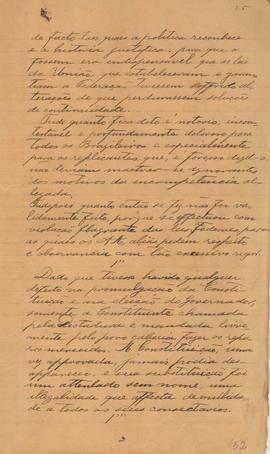 25
de facto taes quaes a politica reconhece
e a historia justifica: para que o
fossem era indispensavel que as leis
da União, que estabeleceram e garan-
tiam a Federação tivessem soffrido al-
teração de que perdurassem solução
de continuidade.
Tudo quanto fica dito é notorio, incon-
testavel e profundamente doloroso para
todos os Brasileiros e especialmente
para os replicantes, que, é forçoso dizel-o,
não deviam mostrar-se ignorantes
dos motivos da incompetencia al-
legada.
E depois quanto entre se fez não foi va-
lidamente feito, porque se effectuou com
violação flagrante das leis Federaes, para
as quaes os A.A. aliás pedem respeito
e observancia com tão excessivo rigor.
Dado que tivesse havido qualquer
defeito na promulgação da Consti-
tuição e na eleição do Governador,
somente a Constituinte chamada
pela dictadura e mandada livre-
mente pelo povo caberia fazer os repa-
ros merecidos. A Constituição, uma
vez approvada, jamais podia des-
apparecer, e sua substituição foi
um attentado sem nome, uma
illegalidade que affecta de nullida-
de a todos os seus consectarios.
52